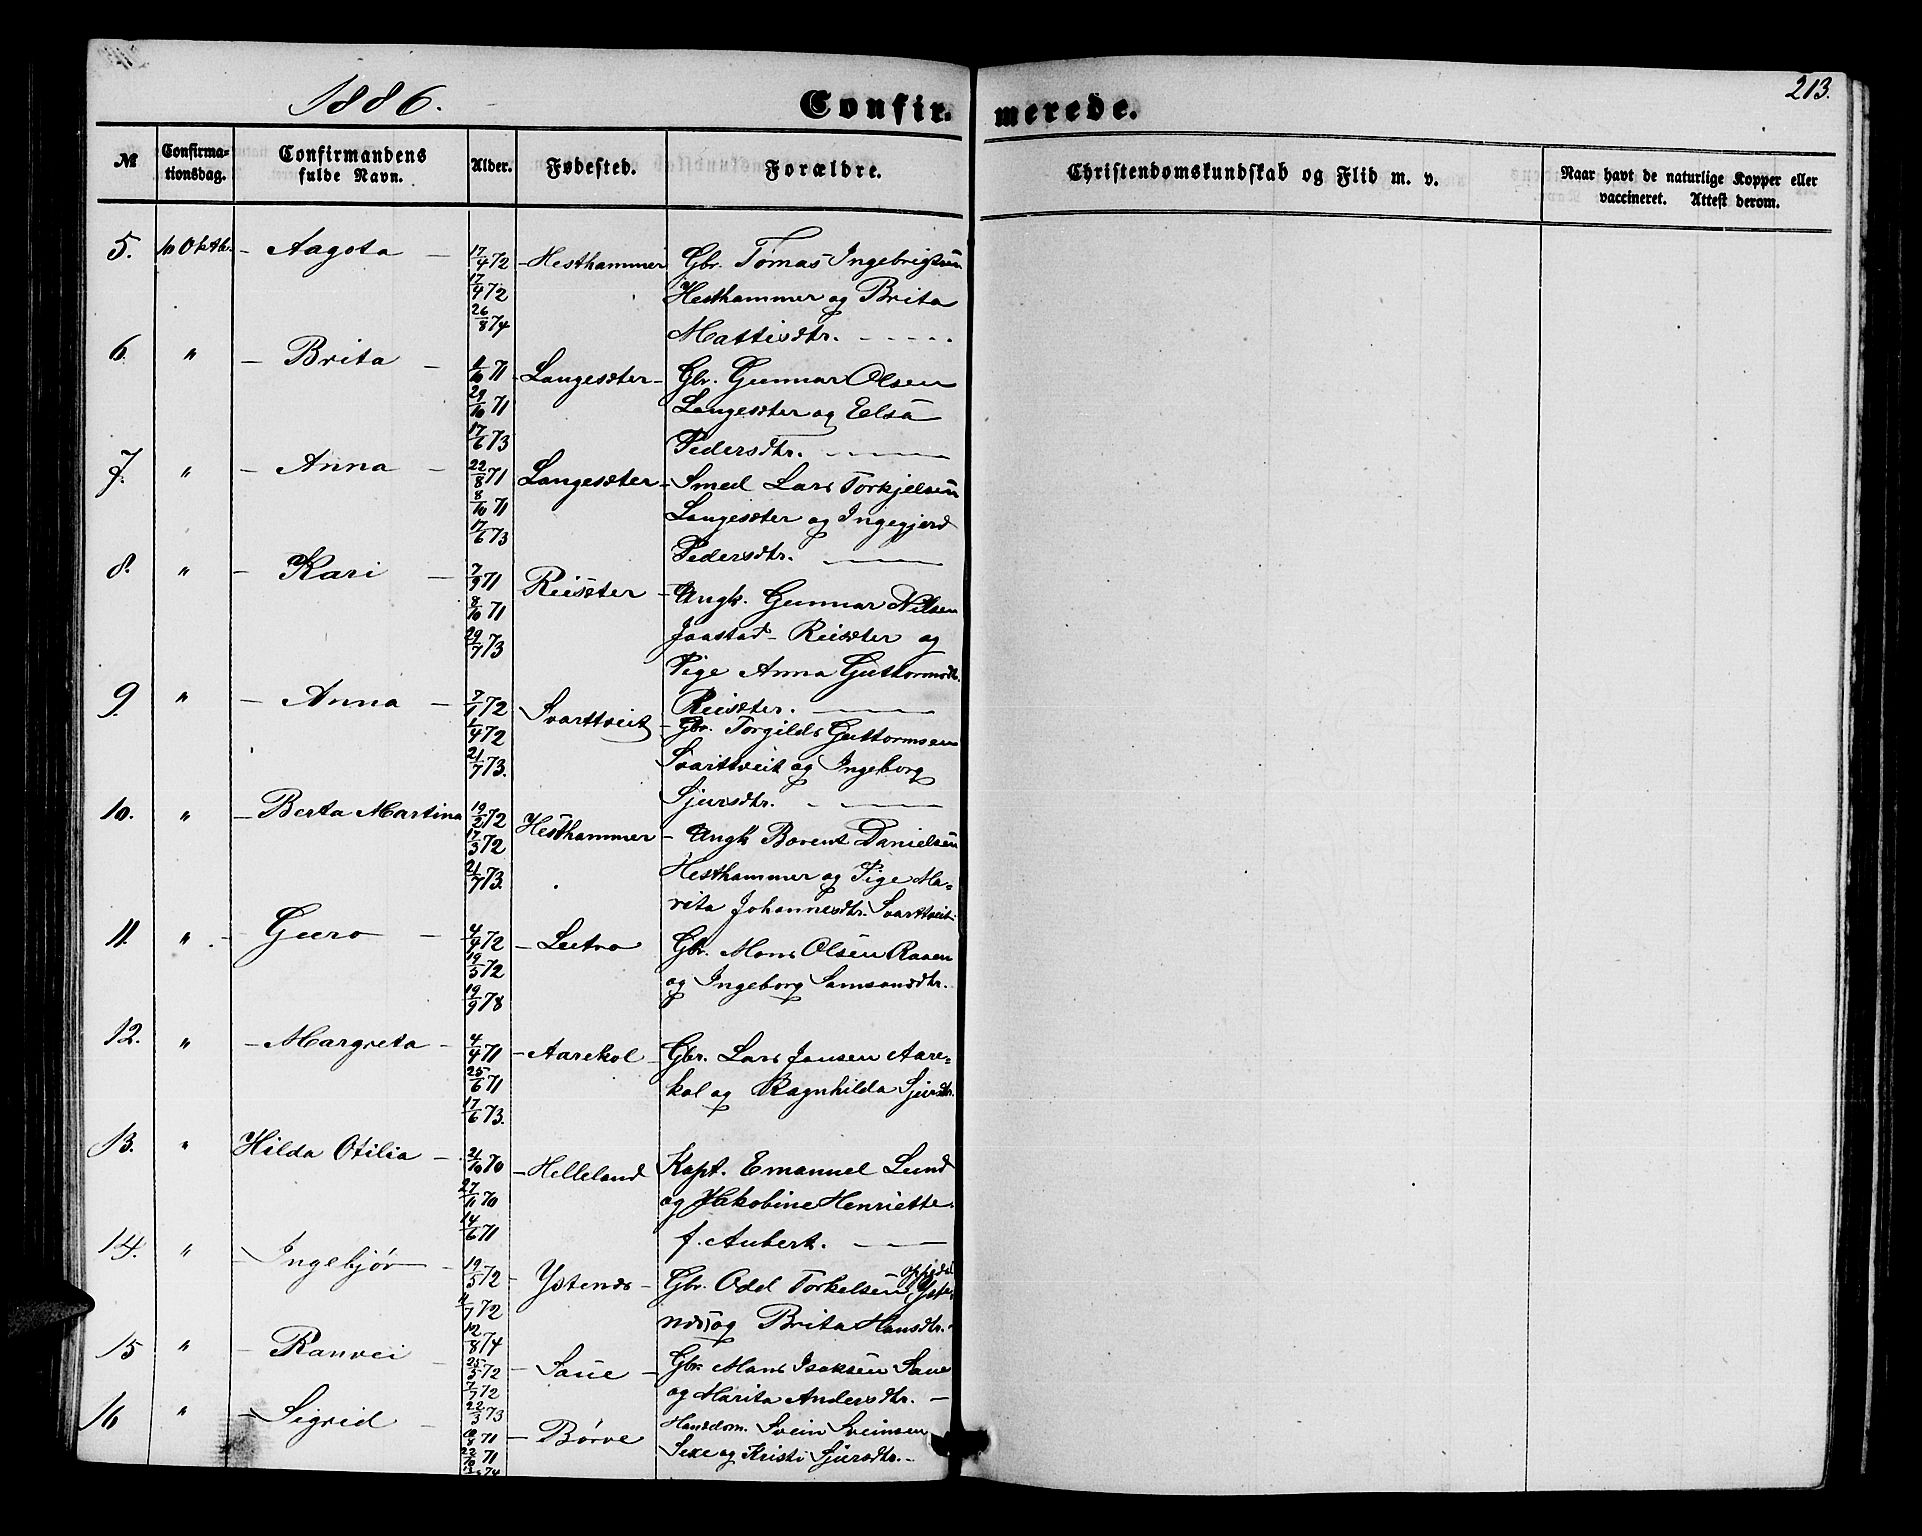 1886.
Confir- merede.
213.
№ Confirma-tionsdag. Confirmandens fulde Navn. Alder. Fødested. Forældre. Christendomskundskab og Flid m. v. Naar havt de naturlige Kopper eller vaccineret. Attest derom.
5. 10 Oktbr. - Aagota - 17/4 72 - Hesthammer Gbr. Tomas Ingebrigtsen
17/4 72 Hesthammer og Brita
26/8 74 Mattisdtr. - - - - -
6. " - Brita - 1/10 71 - Langesæter - Gbr. Gunnar Olsen
29/10 71 Langesæter og Eelsa
17/6 73 Pedersdtr.
7. " - Anna - 22/8 71 Langesæter - Smed Lars Torkjelsen
8/10 71 Langesæter og Ingegjerd
17/6 73 Pedersdtr.
8. " - Kari - 7/9 71 Reisæter - Ungk. Gunnar Nilsen
8/10 71 Jaastad - Reisæter og
29/7 73 Pige Anna Guttormsdtr.
Reisæter.
9. " - Anna - 7/1 72 Svartveit - Gbr. Torgilds Guttormsen
1/4 72 Svartveit og Ingeborg
21/7 73. Sjursdtr.
10. " - Berta Martina 19/2 72 Hesthammer - Ungk Borent Danielsen
17/3 72 Hesthammer og Pige Ma=
21/7 73. rita Johannesdtr. Svartveit.
11. " - Guro - 4/4 72 - Lutro Gbr. Mons Olsen Raaen
19/5 72 og Ingeborg Samsonsdtr.
19/9 78
12. " - Margreta - 4/4 71 - Aarekol - Gbr. Lars Jansen Aare=
25/6 71 kol og Ragnhilda Sjursdtr.
17/6 73.
13. " Hilda Otilia - 21/10 70 - Helleland Kapt. Emanuel Lund
27/11 70 og Jakobine Henriette
14/6 71 f. Aubert.
14. " - Ingebjør - 19/5 72 - Ystenæs - Gbr. Odd Torkelsen Oppedal (Yste
1/7 72 næs) og Brita Hansdtr.
12/8 74
15 " - Ranvei - 25/5 72 - Saue - Gbr. Mons Isaksen Saue
7/7 72 og Marita Andersdtr. -
22/3 73
16 " - Sigrid - 71 - Børve Husdom. Svein Sveinsen
22/10 71 Sexe og Kristi Sjursdtr. -
74